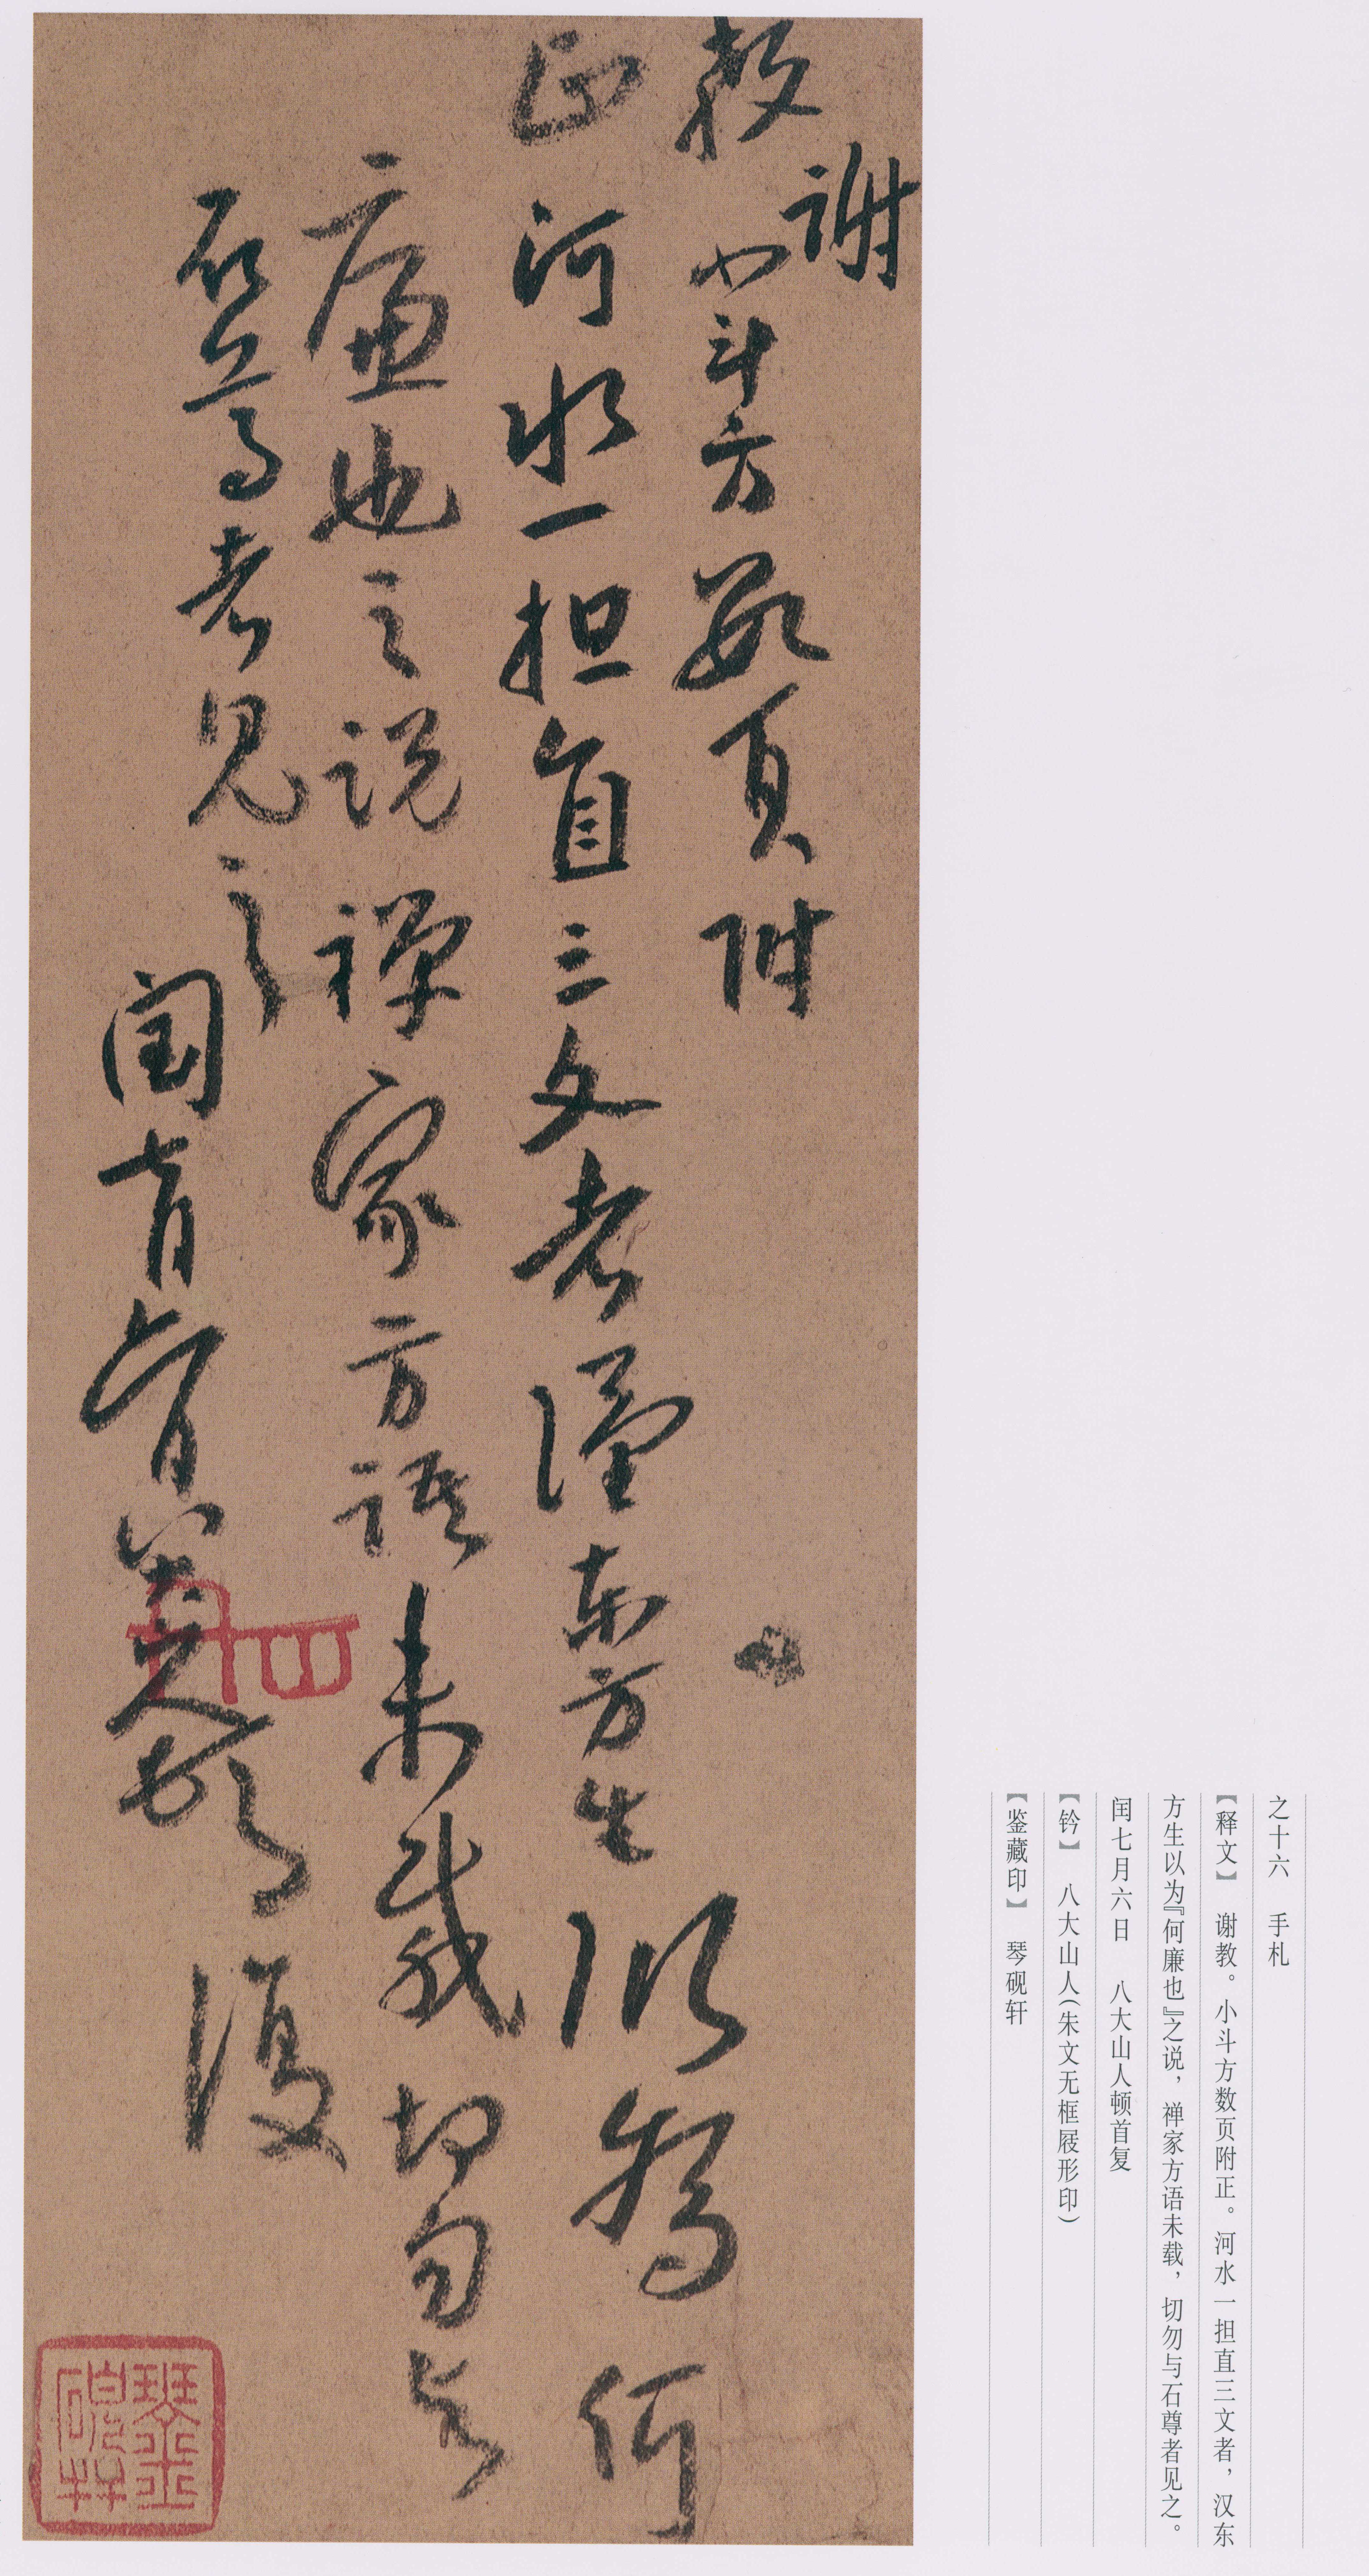 之十六　手札
【释文】　谢教。小斗方数页附正。河水一担直三文者，汉东
方生以为『何廉也』之说，禅家方语未载，切勿与石尊者见之。
闰七月六日　八大山人顿首复
【钤】　八大山人（朱文无框屐形印）
【鉴藏印】　琴砚轩
謝
教小斗方數頁附
正河水一担直三文者漢東方生以為何
廉也之説禪家方語未載切勿与
石尊者見之
閏七月六日八大山人頓首復
琴硯軒